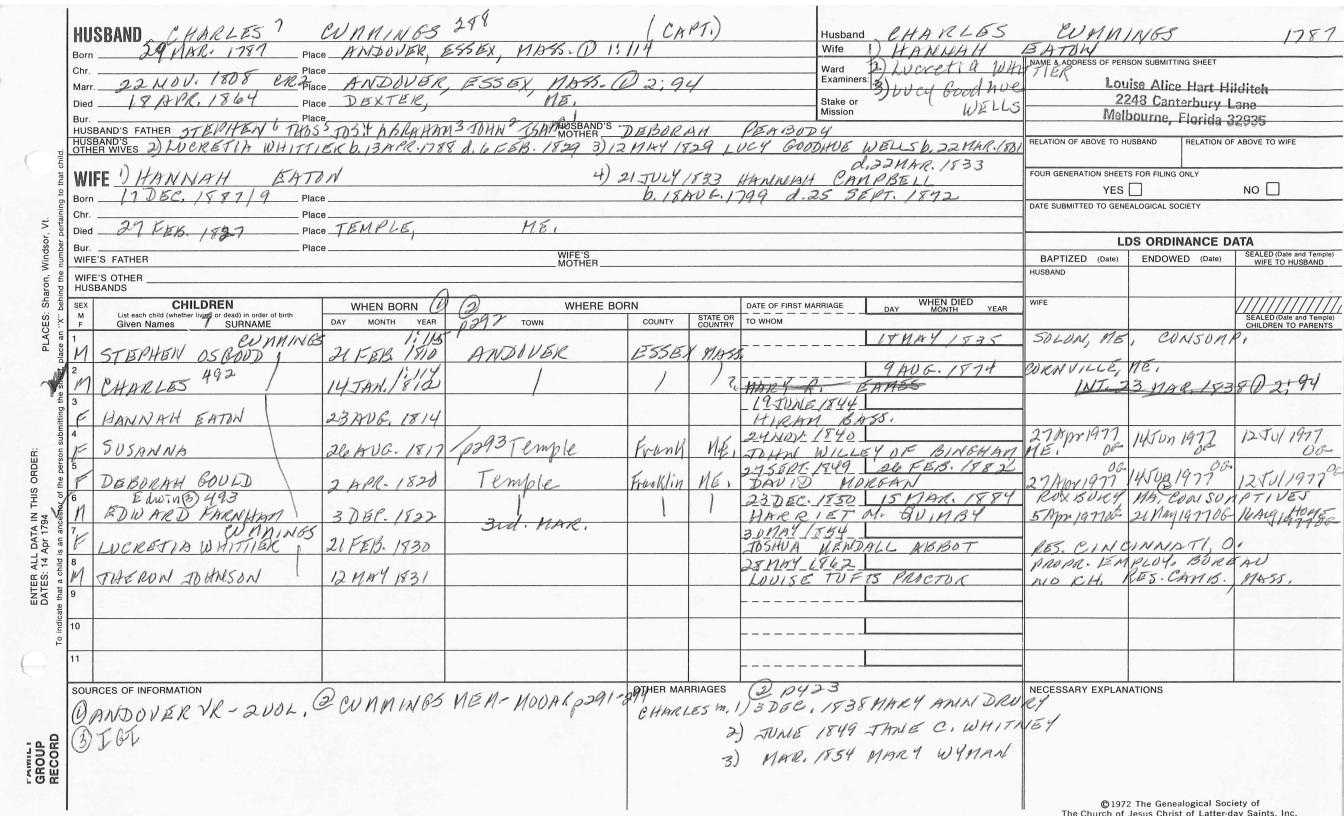 HUSBAND CHARLES 7 CUMMINGS 288 (CAPT.)
Born 29 MAR. 1787 Place ANDOVER, ESSEX, MASS. ① 1:114
Chr. Place
Marr. 22 NOV. 1808 CR2 Place ANDOVER, ESSEX, MASS. ① 2:94
Died 18 APR. 1864 Place DEXTER, ME.
Bur. Place
HUSBAND'S FATHER STEPHEN 6 THOS 5 JOS 4 ABRAHAM 3 JOHN 2 ISAAC 1 HUSBAND'S MOTHER DEBORAH PEABODY
HUSBAND'S OTHER WIVES 2) LUCRETIA WHITTIER b. 13 APR. 1788 d. 6 FEB. 1829 3) 12 MAY 1829 LUCY GOODHUE WELLS b. 22 MAR. 1801
d. 22 MAR. 1833
WIFE 1) HANNAH EATON 4) 21 JULY 1833 HANNAH CAMPBELL
Born 17 DEC. 1887/9 Place b. 18 AUG. 1799 d. 25 SEPT. 1872
Chr. Place
Died 27 FEB. 1827 Place TEMPLE, ME.
Bur. Place
WIFE'S FATHER WIFE'S MOTHER
WIFE'S OTHER HUSBANDS
Husband CHARLES CUMMINGS 1787
Wife 1) HANNAH EATON
Ward Examiners: 2) Lucretia WHITTIER
3) Lucy Goodhue
Stake or Mission WELLS
NAME & ADDRESS OF PERSON SUBMITTING SHEET
Louise Alice Hart Hilditch
2248 Canterbury Lane
Melbourne, Florida 32935
RELATION OF ABOVE TO HUSBAND RELATION OF ABOVE TO WIFE
FOUR GENERATION SHEETS FOR FILING ONLY
YES NO
DATE SUBMITTED TO GENEALOGICAL SOCIETY
LDS ORDINANCE DATA
BAPTIZED (Date) ENDOWED (Date) SEALED (Date and Temple) WIFE TO HUSBAND
HUSBAND
WIFE
SEALED (Date and Temple) CHILDREN TO PARENTS
SEX M F CHILDREN List each child (whether living or dead) in order of birth Given Names SURNAME
WHEN BORN ① DAY MONTH YEAR ② p292 WHERE BORN TOWN COUNTY STATE OR COUNTRY
DATE OF FIRST MARRIAGE TO WHOM WHEN DIED DAY MONTH YEAR
1 CUMMINGS 1:115 17 MAY 1835 SOLON, ME, CONSUMP.
M STEPHEN OSGOOD 21 FEB. 1810 ANDOVER ESSEX MASS.
2 492 1:114 9 AUG. 1874 CORNVILLE, ME.
M CHARLES 14 JAN. 1812 MARY A. EAMES INT. 23 MAR. 1838 ① 2:94
3 19 JUNE 1844
F HANNAH EATON 23 AUG. 1814 HIRAM BASS.
4 24 NOV. 1840 27 Apr 1977 14 Jun 1977 OG 12 Jul 1977 OG
F SUSANNA 26 AUG. 1817 p293 Temple Frank ME, JOHN WILLEY OF BINGHAM ME.
5 27 SEPT. 1849 26 FEB. 1882
F DEBORAH GOULD 2 APR. 1820 Temple Franklin ME. DAVID MORGAN 27 Apr 1977 OG 14 Jun 1977 OG 12 Jul 1977 OG
6 Edwin ③ 493 23 DEC. 1850 15 MAR. 1884 ROXBURY MA. CONSUMPTIVES HOME
M EDWARD FARNHAM 3 DEC. 1822 HARRIET M. QUIMBY 5 Apr 1977 OG 21 May 1977 OG 16 Aug 1977 OG
7 CUMMINGS 3rd. MAR. 30 MAY 1854
F LUCRETIA WHITTIER 21 FEB. 1830 JOSHUA KENDALL ABBOT RES. CINCINNATI, O.
8 28 MAY 1862 PROPR. EMPLOY. BUREAU
M THERON JOHNSON 12 MAY 1831 LOUISE TUFTS PROCTOR NO CH. RES. CAMB., MASS.
9
10
11
SOURCES OF INFORMATION
① ANDOVER VR - 2 VOL. ② CUMMINGS MEM - MOOAR p291-294
③ IGI
OTHER MARRIAGES ② p423
CHARLES m. 1) 3 DEC. 1838 MARY ANN DRURY
2) JUNE 1849 JANE C. WHITNEY
3) MAR. 1854 MARY WYMAN
NECESSARY EXPLANATIONS
©1972 The Genealogical Society of
The Church of Jesus Christ of Latter-day Saints, Inc.
PLACES: Sharon, Windsor, Vt.
ENTER ALL DATA IN THIS ORDER:
DATES: 14 Apr 1794
To indicate that a child is an ancestor of the person submitting the sheet, place an "X" behind the number pertaining to that child.
FAMILY GROUP RECORD